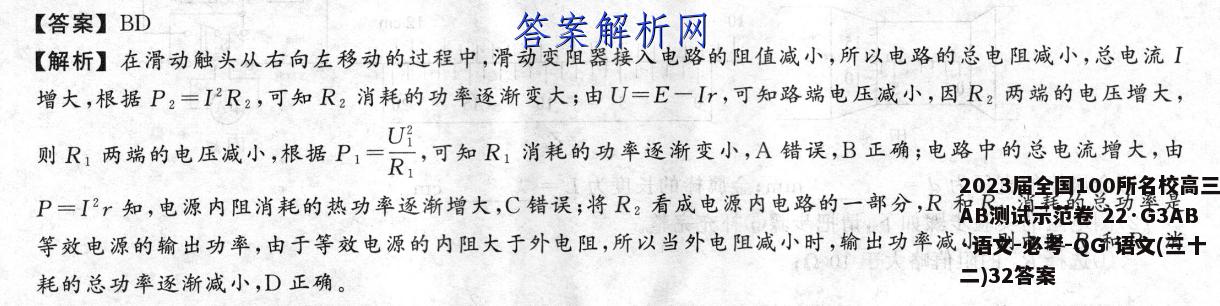 答案解析网
【答案】BD
【解析】在滑动触头从右向左移动的过程中,滑动变阻器接入电路的阻值减小,所以电路的总电阻减小,总电流 I
增大,根据 P₂=I²R₂,可知 R₂ 消耗的功率逐渐变大;由 U=E-Ir,可知路端电压减小,因 R₂ 两端的电压增大,
则 R₁ 两端的电压减小,根据 P₁=U₁²/R₁,可知 R₁ 消耗的功率逐渐变小,A 错误,B 正确;电路中的总电流增大,由
P=I²r 知,电源内阻消耗的热功率逐渐增大,C 错误;将 R₂ 看成电源内电路的一部分,R 和 R₁ 消耗的总功率是
等效电源的输出功率,由于等效电源的内阻大于外电阻,所以当外电阻减小时,输出功率减小
耗的总功率逐渐减小,D 正确。
2023届全国100所名校高三
AB测试示范卷 22·G3AB
·语文-必考-QG 语文(三十
二)32答案